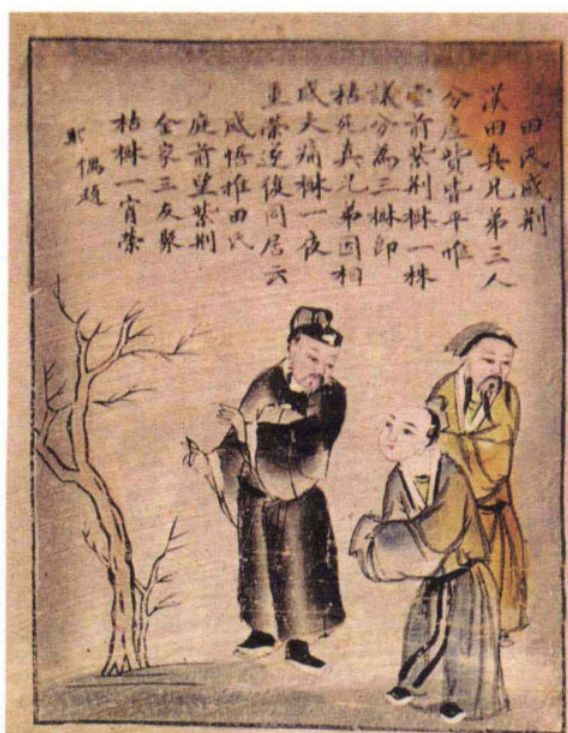 田氏感荆
漢田真兄弟三人
分產貲皆平惟
堂前紫荆樹一株
議分為三樹即
枯死真兄弟因相
感大痛樹一夜
重榮遂復同居云
感悟推田氏
庭前望紫荆
全家三友聚
枯樹一宵榮
偶題